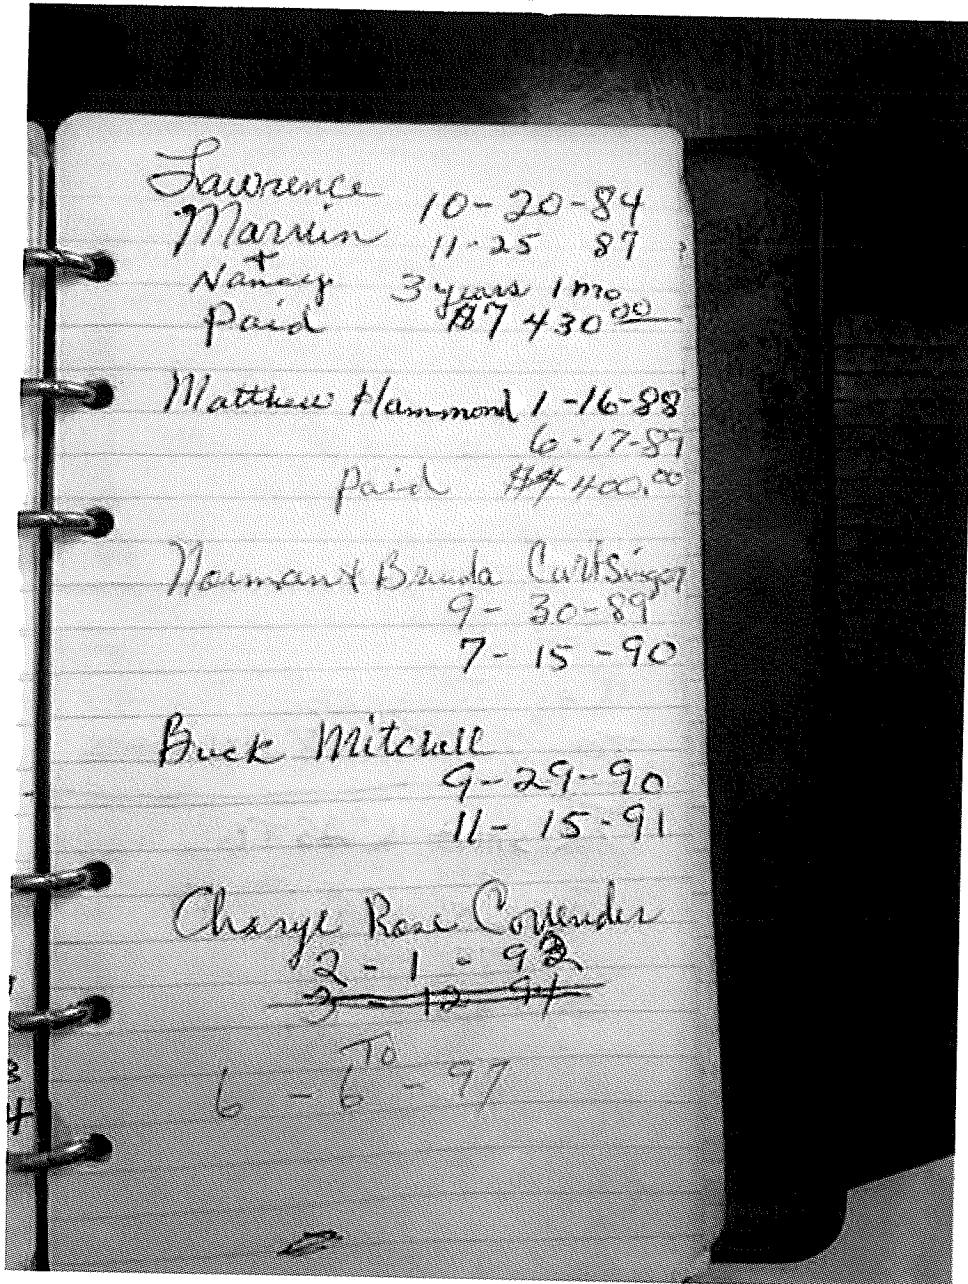 Lawrence
Marvin 10-20-84
+ 11-25 87
Nancy 3 years 1 mo
Paid $7 430 00
Matthew Hammond 1-16-88
6-17-89
Paid 400.00
Norman & Brenda Curtsinger
9-30-89
7-15-90
Buck Mitchell
9-29-90
11-15-91
Rose
2-1-92
3 12 94
To
6-6-97